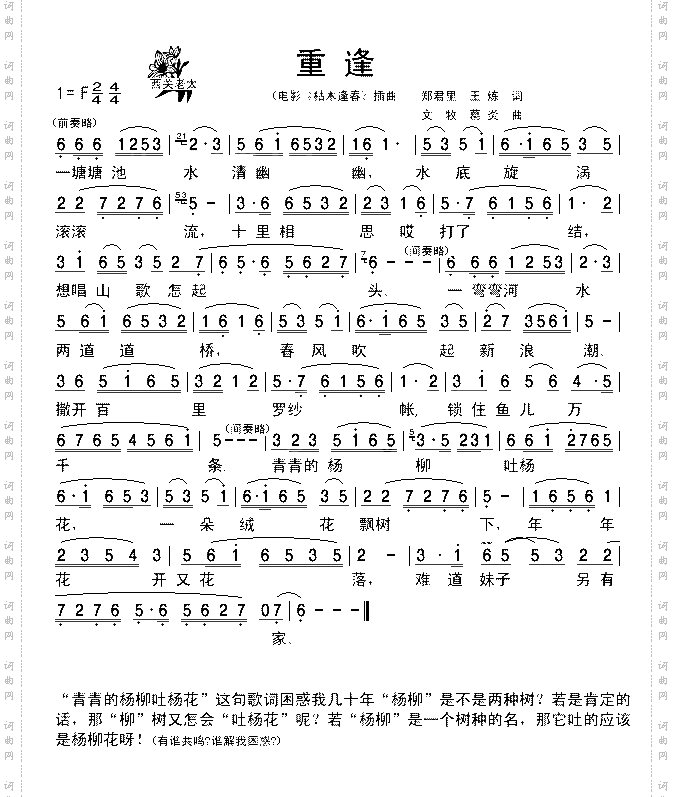 重逢
西关老太
1=F 2/4 4/4
(电影《枯木逢春》插曲 郑君里 王炼 词
文牧 葛炎 曲
(前奏略)
6 6 6 1253 | 2·3 | 5 6 i 6532 | 1 6 1· | 5 3 5 i | 6·i 6 5 3 5 |
一塘塘池 水 清幽 幽， 水底 旋 涡
2 2 7 2 7 6 | 5 - | 3·6 6 5 3 2 | 2 3 1 6 | 5·7 6 1 5 6 | 1· 2 |
滚滚 流，十里相 思哎打了 结，
3 i 6 5 3 5 2 7 | 6·5 6 5 6 2 7 | 6 - - (间奏略) | 6 6 6 1 2 5 3 | 2·3 |
想唱山歌怎起 头、 一弯弯河 水
5 6 i 6 5 3 2 | 1 6 1 6 | 5 3 5 i | 6·i 6 5 3 5 | 2 7 3561 | 5 - |
两道道 桥， 春风吹 起新浪 潮、
3 6 5 i 6 5 | 3 2 1 2 | 5·7 6 1 6 5 | 1·2 | 3 i 6 5 6 4·5 |
撒开百 里 罗纱 帐，锁住鱼儿万
6 7 6 5 4 5 6 i | 5 - - - (间奏略) | 3 2 3 5 i 6 5 | 3·5 231 | 6 6 i 2765 |
千 条、 青青的杨 柳 吐杨
6·i 6 5 3 | 5 3 5 i | 6·i 6 5 3 5 | 2 2 7 2 7 6 | 5 - | 1 6 5 6 1 |
花， 一朵绒 花飘树 下，年 年
2 3 5 4 3 | 5 6 i 6 5 3 5 | 2 - | 3·i | 6 5 5 3 2 2 |
花 开又花 落，难道妹子 另有
7 2 7 6 5·6 5 6 2 7 07 | 6 - - - ‖
家、
“青青的杨柳吐杨花”这句歌词困惑我几十年“杨柳”是不是两种树？若是肯定的
话，那“柳”树又怎会“吐杨花”呢？若“杨柳”是一个树种的名，那它吐的应该
是杨柳花呀！(有谁共鸣?谁解我困惑?)
词曲网
词曲网
词曲网
词曲网
词曲网
词曲网
词曲网
词曲网
词曲网
词曲网
词曲网
词曲网
词曲网
词曲网